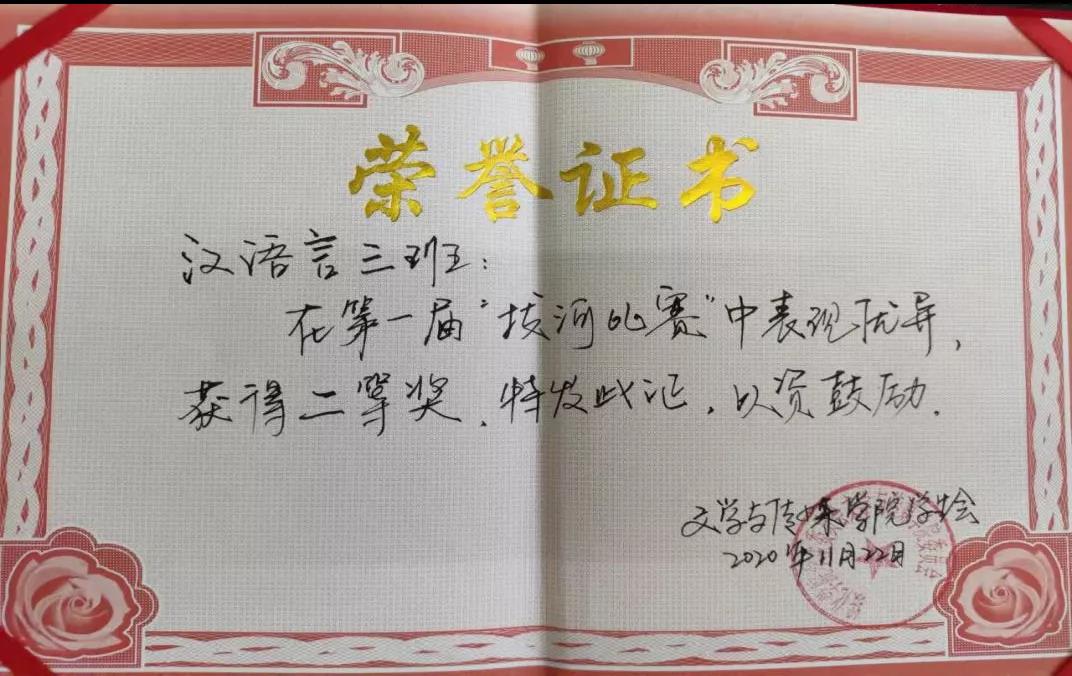 荣誉证书
汉语言三班：
在第一届“拔河比赛”中表现优异，
获得二等奖、特发此证，以资鼓励.
文学与传媒学院学生会
2020年11月22日